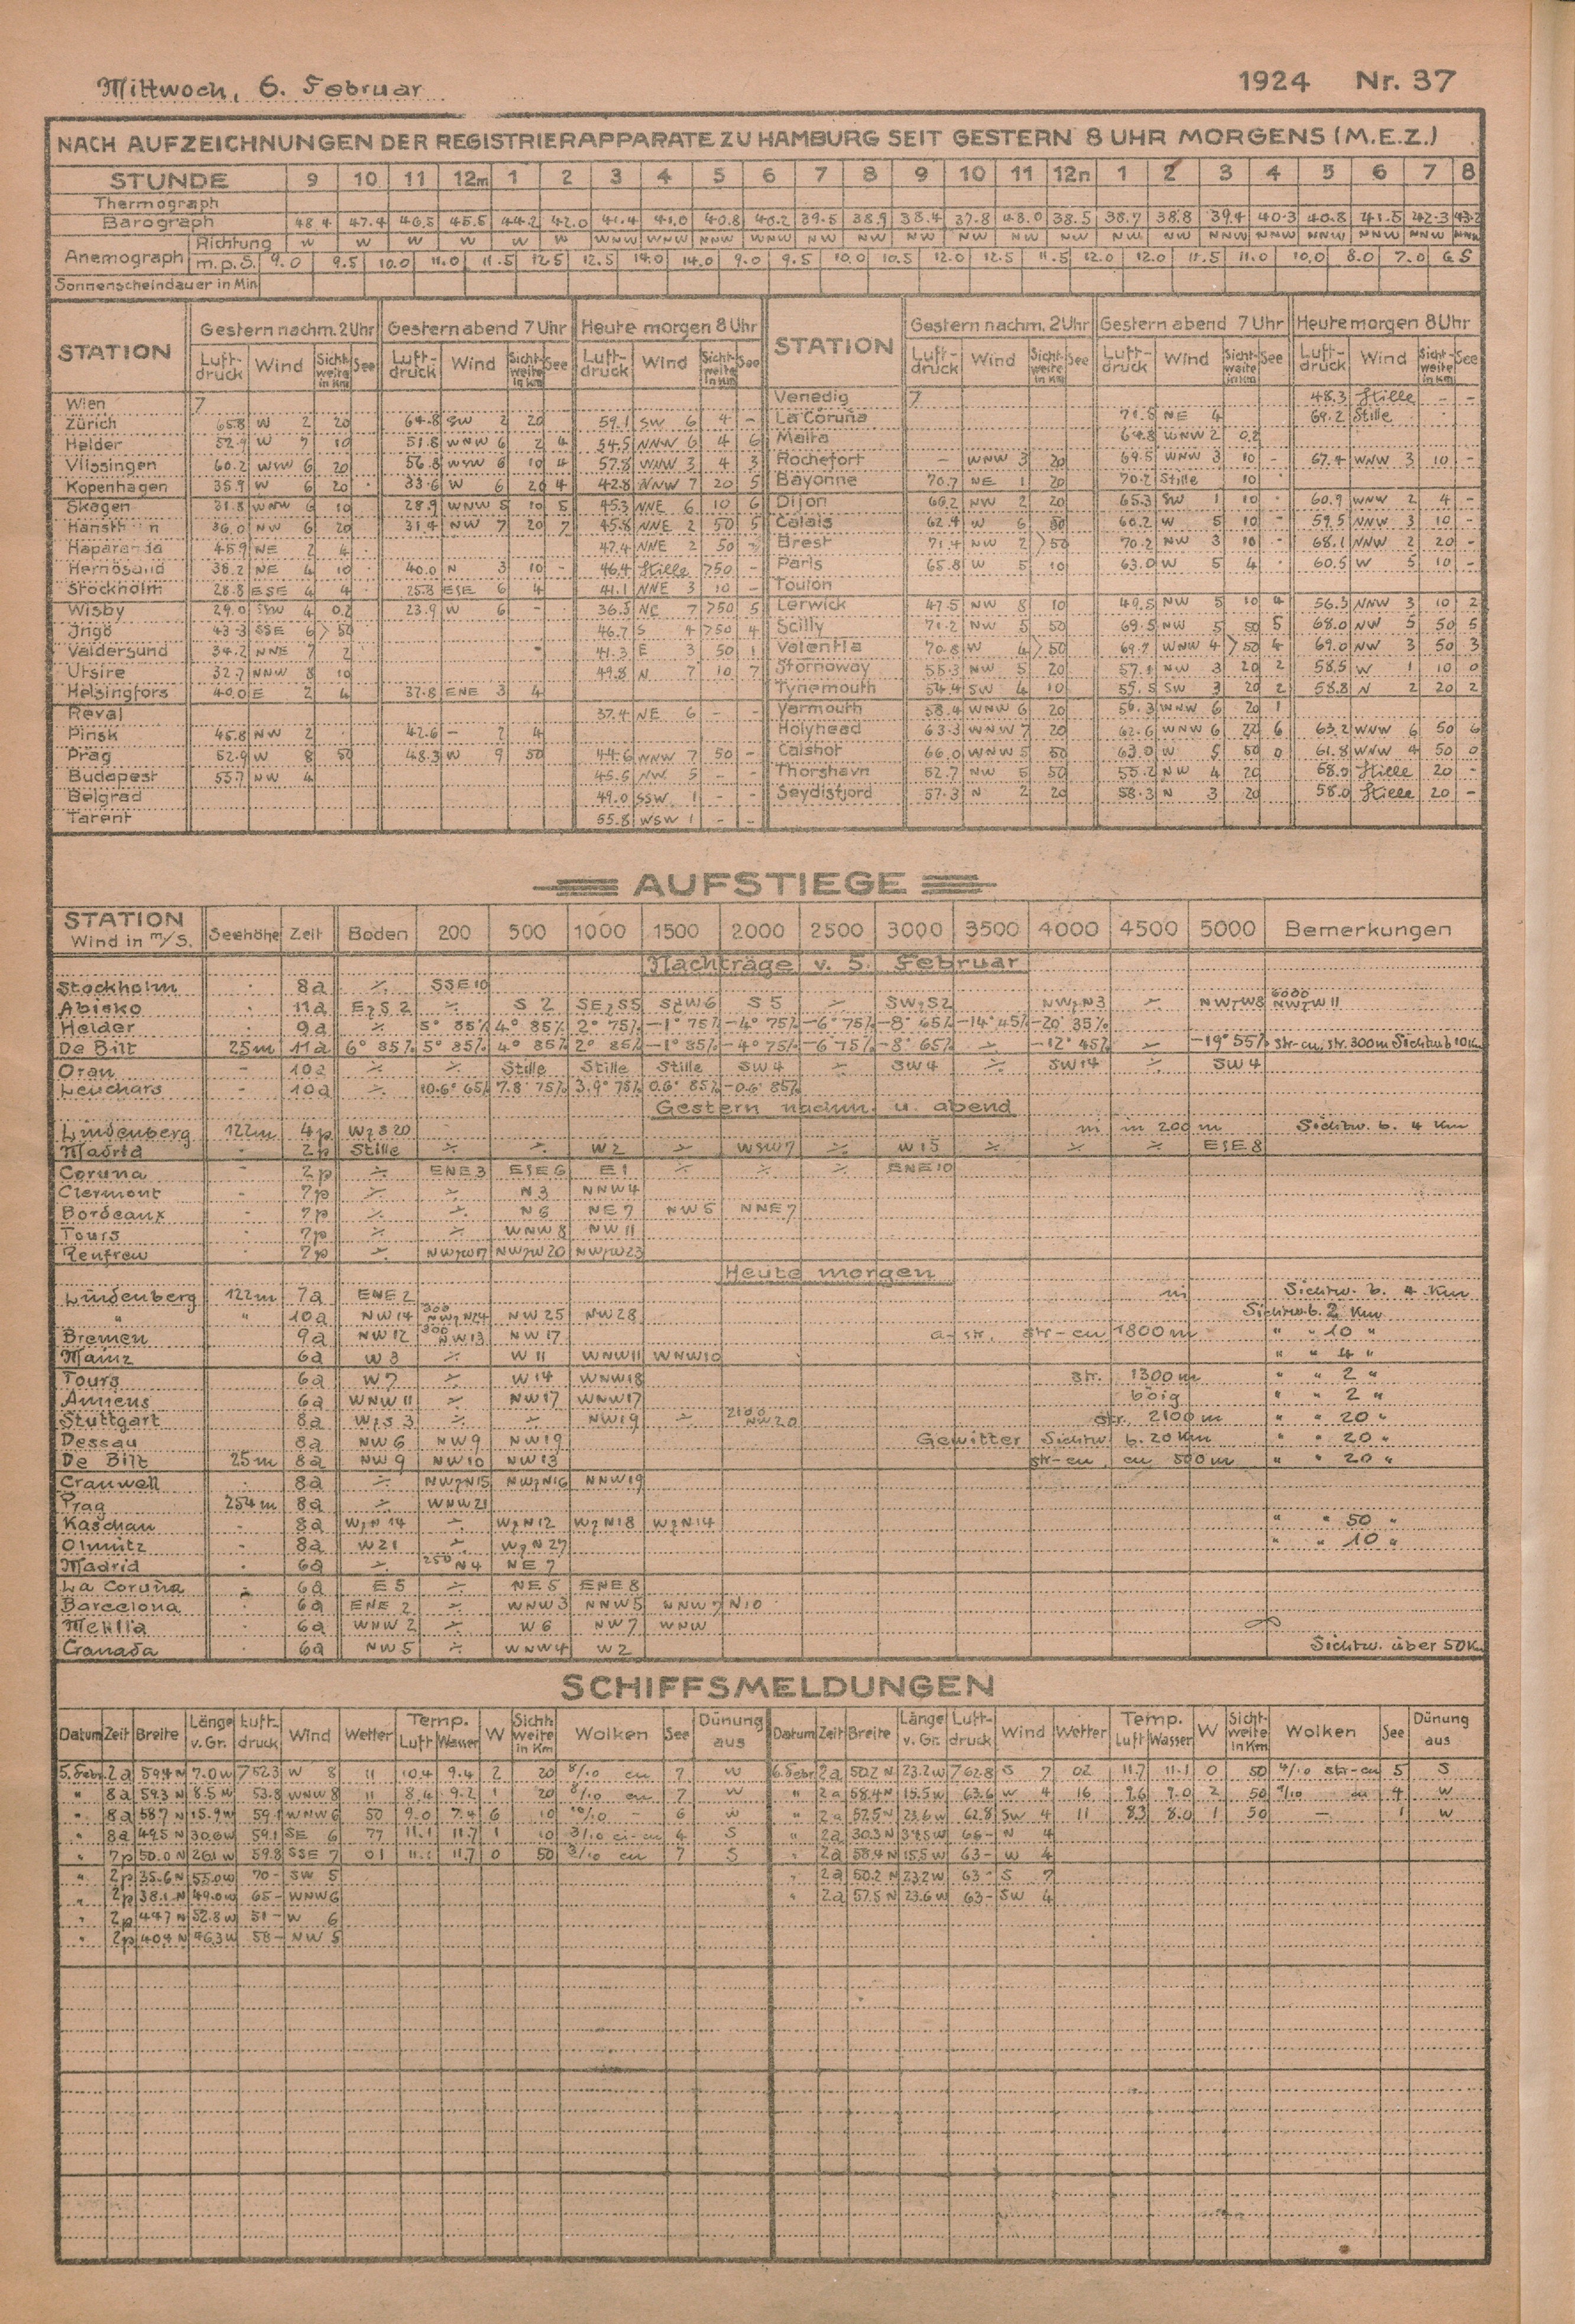 Mittwoch, 6. Februar 1924 Nr. 37
NACH AUFZEICHNUNGEN DER REGISTRIERAPPARATE ZU HAMBURG SEIT GESTERN 8 UHR MORGENS (M.E.Z.)
STUNDE 9 10 11 12m 1 2 3 4 5 6 7 8 9 10 11 12n 1 2 3 4 5 6 7 8
Thermograph
Barograph 48.4 47.4 46.5 45.5 44.2 42.0 41.4 41.0 40.8 40.2 39.5 38.9 38.4 37.8 38.5 38.7 38.8 39.4 40.3 40.8 41.5 42.3 43.2
Anemograph Richtung W W W W W W WNW WNW NNW WNW NW NW NW NW NW NW NW NW NNW NNW NNW NNW NNW NNW
m.p.S. 9.0 9.5 10.0 11.0 11.5 12.5 12.5 14.0 14.0 9.0 9.5 10.0 10.5 12.0 12.5 11.5 12.0 12.0 11.5 11.0 10.0 8.0 7.0 6.5
Sonnenscheindauer in Min
STATION Gestern nachm. 2 Uhr Gestern abend 7 Uhr Heute morgen 8 Uhr STATION Gestern nachm. 2 Uhr Gestern abend 7 Uhr Heute morgen 8 Uhr
Luft-druck Wind Sicht-weite in Km See Luft-druck Wind Sicht-weite in Km See Luft-druck Wind Sicht-weite in Km See Luft-druck Wind Sicht-weite in Km See Luft-druck Wind Sicht-weite in Km See Luft-druck Wind Sicht-weite in Km See
Wien 7 Venedig 7 48.3 Stille - -
Zürich 65.8 W 2 20 64.8 SW 2 20 59.1 SW 6 4 - La Coruña 71.5 NE 4 69.2 Stille
Helder 52.9 W 7 10 51.8 WNW 6 2 4 54.5 NNW 6 4 6 Malta 64.8 WNW 2 0.2
Vlissingen 60.2 WSW 6 20 56.8 WSW 6 10 4 57.8 WNW 3 4 3 Rochefort - WNW 3 20 69.5 WNW 3 10 - 67.4 WNW 3 10 -
Kopenhagen 35.9 W 6 20 33.6 W 6 20 4 42.8 NNW 7 20 5 Bayonne 70.7 NE 1 20 70.2 Stille 10
Skagen 31.8 WNW 6 10 28.9 WNW 5 10 5 45.3 NNE 6 10 6 Dijon 66.2 NW 2 20 65.3 SW 1 10 - 60.9 WNW 2 4 -
36.0 NW 6 20 31.4 NW 7 20 7 45.8 NNE 2 50 5 Calais 62.4 W 6 50 60.2 W 5 10 - 59.5 NNW 3 10 -
Haparanda 45.9 NE 2 4 47.4 NNE 2 50 - Brest 71.4 NW 2 >50 70.2 NW 3 10 - 68.1 NNW 2 20 -
Hernösand 36.2 NE 4 10 40.0 N 3 10 - 46.4 Stille >50 - Paris 65.8 W 5 10 63.0 W 5 4 60.5 W 5 10 -
Stockholm 28.8 ESE 4 4 25.3 ESE 6 4 41.1 NNE 3 10 - Toulon
Wisby 29.0 SSW 4 0.2 23.9 W 6 - 36.5 NE 7 >50 5 Lerwick 47.5 NW 8 10 49.5 NW 5 10 4 56.3 NNW 3 10 2
Jrigö 43.3 SSE 6 >50 46.7 S 4 >50 4 Scilly 71.2 NW 5 50 69.5 NW 5 50 5 68.0 NW 5 50 5
Valdersund 34.2 NNE 7 2 41.3 E 3 50 1 Valentia 70.8 W 4 >50 69.7 WNW 4 >50 4 69.0 NW 3 50 3
Utsire 32.7 NNW 8 10 49.8 N 7 10 7 Stornoway 55.3 NW 5 20 57.1 NW 3 20 2 58.5 W 1 10 0
Helsingfors 40.0 E 2 4 37.8 ENE 3 4 Tynemouth 54.4 SW 4 10 55.5 SW 3 20 2 58.8 N 2 20 2
Reval 37.4 NE 6 - - Yarmouth 58.4 WNW 6 20 56.3 WNW 6 20 1
Pinsk 45.8 NW 2 42.6 - 2 4 Holyhead 63.3 WNW 7 20 62.6 WNW 6 20 6 63.2 WNW 6 50 6
Prag 52.9 W 8 50 48.3 W 9 50 44.6 WNW 7 50 - Calshot 66.0 WNW 5 50 63.0 W 5 50 0 61.8 WNW 4 50 0
Budapest 55.7 NW 4 45.5 NW 5 - - Thorshavn 52.7 NW 5 50 55.2 NW 4 20 58.0 Stille 20 -
Belgrad 49.0 SSW 1 - - Seydisfjord 57.3 N 2 20 58.3 N 3 20 58.0 Stille 20 -
Tarent 55.8 WSW 1 - -
AUFSTIEGE
STATION Wind in m/S. Seehöhe Zeit Boden 200 500 1000 1500 2000 2500 3000 3500 4000 4500 5000 Bemerkungen
Nachträge v. 5. Februar
Stockholm 8a ⁒ SSE 10
Abisko 11a EzS 2 ⁒ S 2 SEzS5 SzW6 S 5 ⁒ SWzS2 NWzN3 ⁒ NWzW8 6000 NWzW 11
Helder 9a ⁒ 5° 85% 4° 85% 2° 75% -1° 75% -4° 75% -6° 75% -8° 65% -14° 45% -20° 35%
De Bilt 25m 11a 6° 85% 5° 85% 4° 85% 2° 85% -1° 85% -4° 75% -6 75% -8° 65% ⁒ -12° 45% ⁒ -19° 55% str-cu, str. 300m Sichtw. b 10 Km
Oran - 10a ⁒ ⁒ Stille Stille Stille SW 4 ⁒ SW 4 ⁒ SW 14 ⁒ SW 4
Leuchars - 10a ⁒ 10.6° 65% 7.8° 75% 3.9° 75% 0.6° 85% -0.6° 85%
Gestern nachm. u. abend
Lindenberg 122m 4p WzS 20 ni in 200 m Sichtw. b. 4 Km
Madrid - 2p Stille W 2 ⁒ WSW 7 ⁒ W 15 ⁒ ⁒ ESE 8
Coruna - 2p ⁒ ENE 3 ESE 6 E 1 ⁒ ⁒ ⁒ ENE 10
Clermont 7p ⁒ ⁒ N 3 NNW 4
Bordeaux 7p ⁒ ⁒ N 6 NE 7 NW 5 NNE 7
Tours 7p ⁒ ⁒ WNW 8 NW 11
Renfrew 7p ⁒ NWzW17 NWzW 20 NWzW23
Heute morgen
Lindenberg 122m 7a ENE 2 ni Sichtw. b. 4 Km
" " 10a NW 14 300 NWzN24 NW 25 NW 28 Sichtw. b. 2 Km
Bremen 9a NW 12 300 NW 13 NW 17 a-str. str-cu 1800 m " " 10 "
Mainz 6a W 3 ⁒ W 11 WNW11 WNW10 " " 4 "
Tours 6a W 7 ⁒ W 14 WNW18 str. 1300 m " " 2 "
Amiens 6a WNW 11 ⁒ NW17 WNW17 böig " " 2 "
Stuttgart 8a WzS 3 ⁒ ⁒ NW19 ⁒ 2100 NW 20 str. 2100 m " " 20 "
Dessau 8a NW 6 NW 9 NW 19 Gewitter Sichtw b. 20 Km " " 20 "
De Bilt 25m 8a NW 9 NW 10 NW 13 str-cu, cu 500 m " " 20 "
Cranwell 8a ⁒ NWzN15 NWzN16 NNW19
Prag 254m 8a ⁒ WNW 21
Kaschau 8a WzN 14 ⁒ WzN12 WzN18 WzN14 " " 50 "
Olmütz 8a W 21 ⁒ WzN 27 " " 10 "
Madrid 6a ⁒ 250 N 4 NE 7
La Coruña 6a E 5 ⁒ NE 5 ENE 8
Barcelona 6a ENE 2 ⁒ WNW 3 NNW 5 NNW 7 N 10
Melilla 6a WNW 2 ⁒ W 6 NW 7 WNW ∞
Granada 6a NW 5 ⁒ WNW4 W 2 Sichtw. über 50 Km
SCHIFFSMELDUNGEN
Datum Zeit Breite Länge v. Gr. Luft-druck Wind Wetter Temp. Luft Wasser W Sicht-weite in Km Wolken See Dünung aus Datum Zeit Breite Länge v. Gr. Luft-druck Wind Wetter Temp. Luft Wasser W Sicht-weite in Km Wolken See Dünung aus
5. Febr. 2a 59.4 N 7.0 W 752.3 W 8 11 10.4 9.4 2 20 8/10 cu 7 W 6. Febr 2a 50.2 N 23.2 W 762.8 S 7 02 11.7 11.1 0 50 4/10 str-cu 5 S
" 8a 59.3 N 8.5 W 53.8 WNW 8 11 8.4 9.2 1 20 8/10 cu 7 W " 2a 58.4 N 15.5 W 63.6 W 4 16 9.6 9.0 2 50 cu 4 W
" 8a 58.7 N 15.9 W 59.1 WNW 6 50 9.0 7.4 6 10 10/10 - 6 W " 2a 57.5 N 23.6 W 62.8 SW 4 11 8.3 8.0 1 50 - 1 W
" 8a 49.5 N 30.0 W 59.1 SE 6 77 11.1 11.7 1 10 3/10 ci-cu 4 S " 2a 30.3 N 66- N 4
" 7p 50.0 N 26.1 W 59.8 SSE 7 01 11.1 11.7 0 50 3/10 cu 7 S " 2a 58.4 N 15.5 W 63- W 4
" 2p 35.6 N 55.0 W 70- SW 5 " 2a 50.2 N 23.2 W 63- S 7
" 2p 38.1 N 49.0 W 65- WNW 6 " 2a 57.5 N 23.6 W 63- SW 4
" 2p 44.7 N 52.8 W 51- W 6
" 2p 40.4 N 46.3 W 58- NW 5